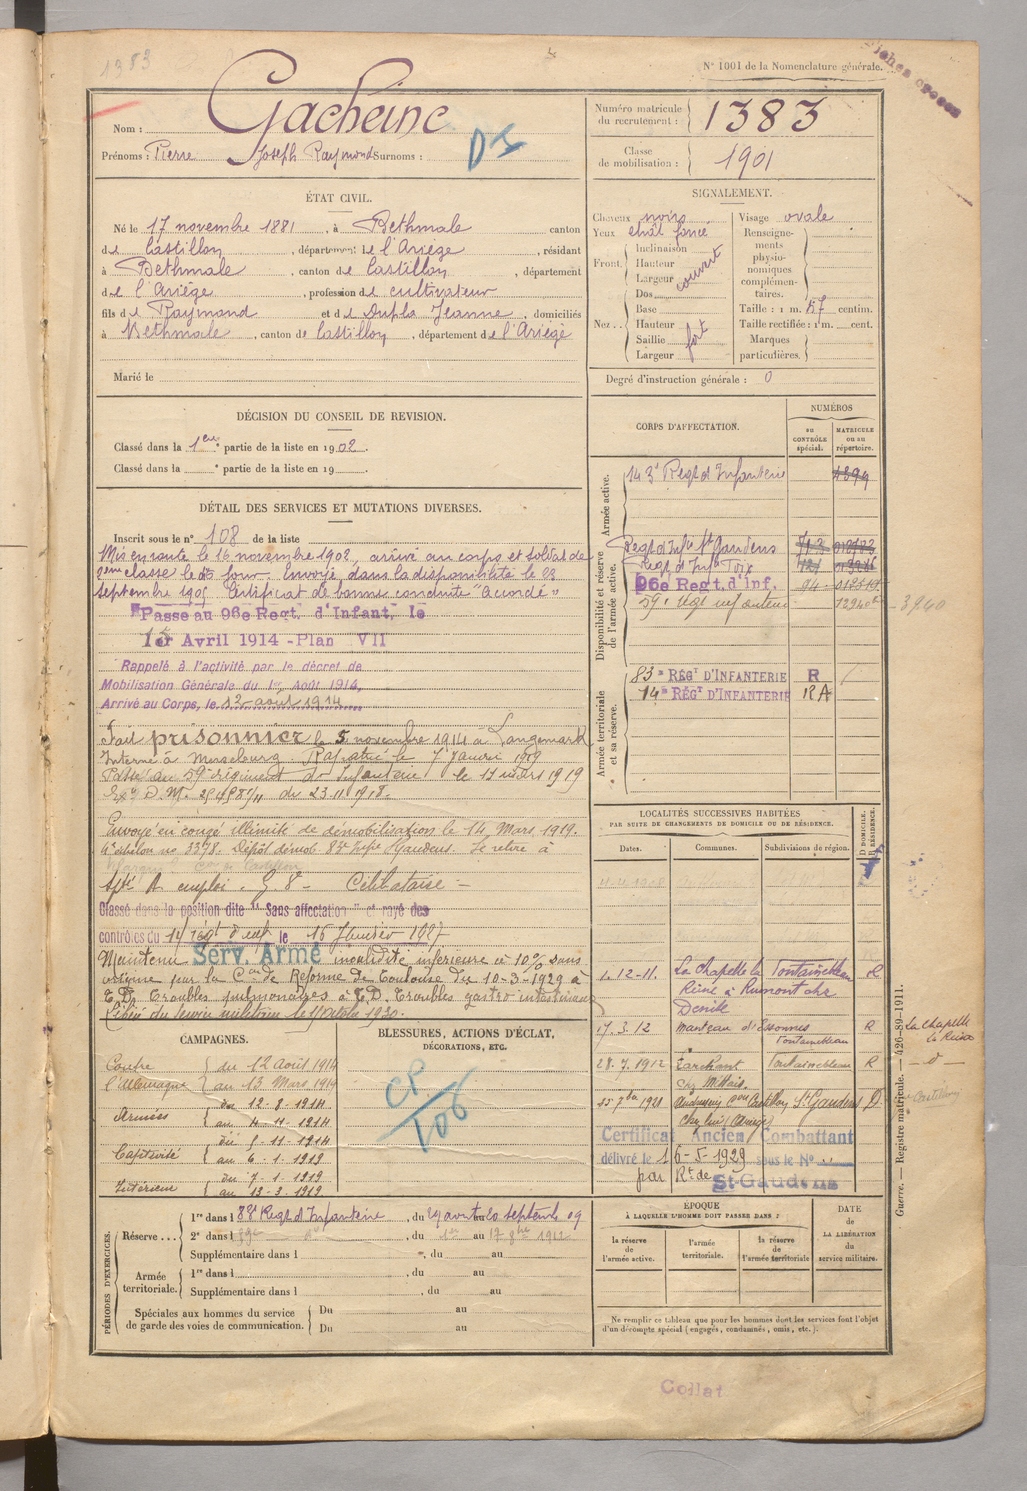 1383
N° 1001 de la Nomenclature générale.
Nom : Gacheinc
Prénoms : Pierre Joseph Raymond Surnoms :
D I
Numéro matricule du recrutement : 1383
Classe de mobilisation : 1901
ÉTAT CIVIL.
Né le 17 novembre 1881, à Bethmale canton
de Castillon, département de l'Ariège, résidant
à Bethmale, canton de Castillon, département
de l'Ariège, profession de cultivateur
fils de Raymond et de Dupla Jeanne, domiciliés
à Bethmale, canton de Castillon, département de l'Ariège
Marié le
SIGNALEMENT.
Cheveux noirs
Yeux chât foncé
Front.
Inclinaison
Hauteur
Largeur
couvert
Nez..
Dos
Base
Hauteur
Saillie
Largeur
fort
Visage ovale
Renseignements physionomiques complémentaires.
Taille : 1 m. 57 centim.
Taille rectifiée : 1m. cent.
Marques particulières.
Degré d'instruction générale : 0
DÉCISION DU CONSEIL DE REVISION.
Classé dans la 1ere partie de la liste en 1902.
Classé dans la e partie de la liste en 19
CORPS D'AFFECTATION.
NUMÉROS
au CONTRÔLE spécial.
MATRICULE ou au répertoire.
Armée active.
143e Regt d'Infanterie
Disponibilité et réserve de l'armée active.
Regt d'Infie St Gaudens
Regt d'Infie Foix
96e Regt. d'Inf.
59e Regt infanterie
Armée territoriale et sa réserve.
83e RÉGT D'INFANTERIE R
14e RÉGT D'INFANTERIE RA
DÉTAIL DES SERVICES ET MUTATIONS DIVERSES.
Inscrit sous le n° 108 de la liste
Mis en route le 16 novembre 1902, arrivé au corps et soldat de
2eme classe le dit jour. Envoyé dans la disponibilité le 23
septembre 1905 Certificat de bonne conduite "Accordé"
Passe au 96e Regt. d'Infant. le
15 Avril 1914 - Plan VII
Rappelé à l'activité par le décret de
Mobilisation Générale du 1er Août 1914,
Arrivé au Corps, le 12 août 1914
Fait prisonnier le 5 novembre 1914 à Langemark
Interné à Merseburg. Rapatrié le 7 Janvier 1919
Passé au 59e régiment d'Infanterie le 17 mars 1919
Envoyé en congé illimité de démobilisation le 14 Mars 1919.
4e échelon no 3378. Dépôt démob 83e Infie St Gaudens. Se retire à
Célibataire
Classé dans la position dite "Sans affectation" et rayé des
contrôles du 14 régt d'inf le 15 Janvier 1927
Maintenu Serv. Armé invalidité inférieure à 10% sans
origine par la Con de Réforme de Toulouse du 10-3-1929 à
E.D. Troubles pulmonaires à E.D. Troubles gastro intestinaux
LOCALITÉS SUCCESSIVES HABITÉES
PAR SUITE DE CHANGEMENTS DE DOMICILE OU DE RÉSIDENCE.
Dates.
Communes.
Subdivisions de région.
D DOMICILE.
R RÉSIDENCE.
4.12-11. La Chapelle la Reine à Rumont chz Denise Fontainebleau R
17.3.12 Fontainebleau R
28.7.1912 Fontainebleau R
St Gaudens D
La Chapelle la Reine
Certificat Ancien Combattant
délivré le 16-5-1929 sous le N°
par Rt de St-Gaudens
CAMPAGNES.
Contre l'Allemagne
du 12 Août 1914
au 13 Mars 1919
Armées
du 12-8-1914
au 4-11-1914
Captivité
du 5-11-1914
au 6-1-1919
Intérieur
du 7-1-1919
au 13-3-1919
BLESSURES, ACTIONS D'ÉCLAT,
DÉCORATIONS, ETC.
CP
108
PÉRIODES D'EXERCICES.
Réserve...
1re dans l 83e Regt d'Infanterie, du 29 août au 20 septemb 09
2e dans l, du 1er au 17 8bre 1912
Supplémentaire dans l, du au
Armée territoriale.
1re dans l, du au
Supplémentaire dans l, du au
Spéciales aux hommes du service de garde des voies de communication.
Du au
Du au
ÉPOQUE
À LAQUELLE L'HOMME DOIT PASSER DANS :
la réserve de l'armée active.
l'armée territoriale.
la réserve de l'armée territoriale
DATE de LA LIBÉRATION du service militaire.
Ne remplir ce tableau que pour les hommes dont les services font l'objet
d'un décompte spécial (engagés, condamnés, omis, etc.).
Guerre. — Registre matricule. — 426-89-1911.
Collat